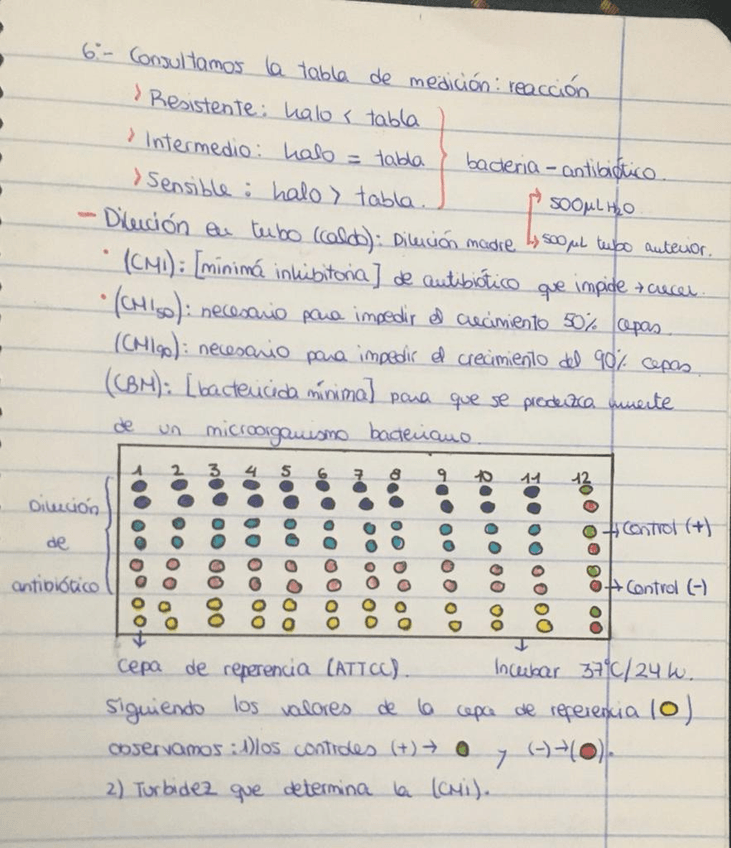 6:- Consultamos la tabla de medición: reacción
> Resistente: halo < tabla
> Intermedio: halo = tabla
> Sensible: halo > tabla.
bacteria - antibiótico.
- Dilución en tubo (caldo): Dilución madre
500µl H2O
500µL tubo anterior.
• (CMI): [mínimá inhibitoria] de antibiótico que impide → crecer.
• (CMI50): necesario para impedir el crecimiento 50% cepas
(CMI90): necesario para impedir el crecimiento del 90% cepas.
(CBM): [bactericida mínima] para que se produzca muerte
de un microorganismo bacteriano.
1 2 3 4 5 6 7 8 9 10 11 12
Dilución
de
antibiótico
→ Control (+)
→ Control (-)
cepa de referencia (ATTCC).
Incubar 37ºC/24 h.
Siguiendo los valores de la cepa de referencia ( )
observamos: 1) los controles (+) → y (-) → ( ).
2) Turbidez que determina la (CMI).